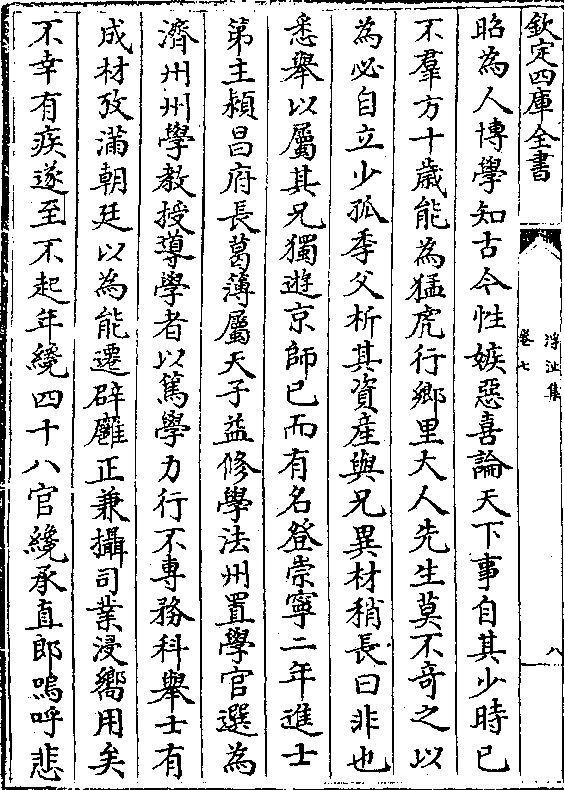 欽定四庫全書
浮沚集
卷七
八
昭為人博學知古今性嫉惡喜論天下事自其少時已
不羣方十歲能為猛虎行鄉里大人先生莫不竒之以
為必自立少孤季父析其資產與兄異材稍長曰非也
悉舉以屬其兄獨遊京師已而有名登崇寧二年進士
第主潁昌府長葛簿屬天子益修學法州置學官選為
濟州州學教授導學者以篤學力行不專務科舉士有
成材攷滿朝廷以為能遷辟廱正兼攝司業浸嚮用矣
不幸有疾遂至不起年纔四十八官纔承直郎嗚呼悲